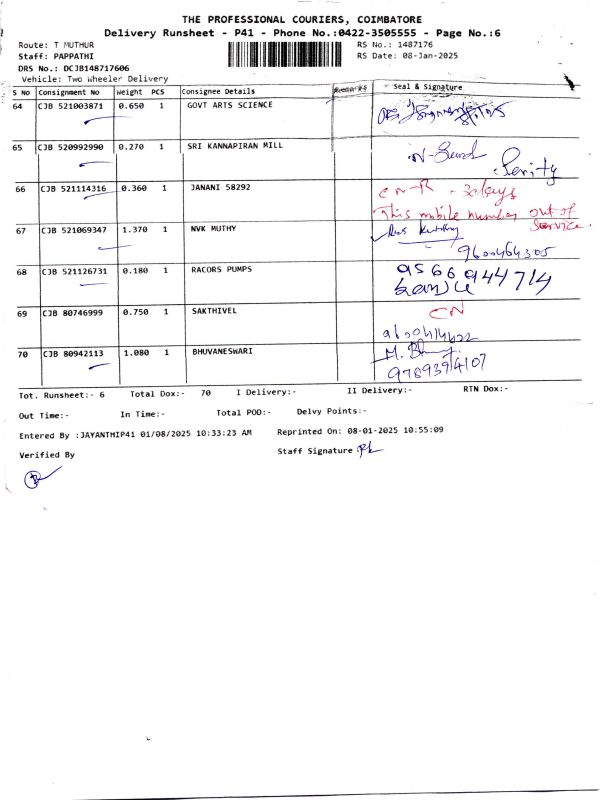 THE PROFESSIONAL COURIERS, COIMBATORE
Delivery Runsheet - P41 - Phone No.:0422-3505555 - Page No.:6
Route: T MUTHUR RS No.: 1487176
Staff: PAPPATHI RS Date: 08-Jan-2025
DRS No.: DCJB148717606
Vehicle: Two Wheeler Delivery
S No Consignment No Weight PCS Consignee Details Remarks Seal & Signature
64 CJB 521003871 0.650 1 GOVT ARTS SCIENCE
65 CJB 520992990 0.270 1 SRI KANNAPIRAN MILL
66 CJB 521114316 0.360 1 JANANI 58292 CN-R - 3days
This mobile number out of
Service.
67 CJB 521069347 1.370 1 NVK MUTHY
9600464305
68 CJB 521126731 0.180 1 RACORS PUMPS 9566944714
69 CJB 80746999 0.750 1 SAKTHIVEL CN
70 CJB 80942113 1.080 1 BHUVANESWARI
9789394107
Tot. Runsheet:- 6 Total Dox:- 70 I Delivery:- II Delivery:- RTN Dox:-
Out Time:- In Time:- Total POD:- Delvy Points:-
Entered By :JAYANTHIP41 01/08/2025 10:33:23 AM Reprinted On: 08-01-2025 10:55:09
Verified By Staff Signature